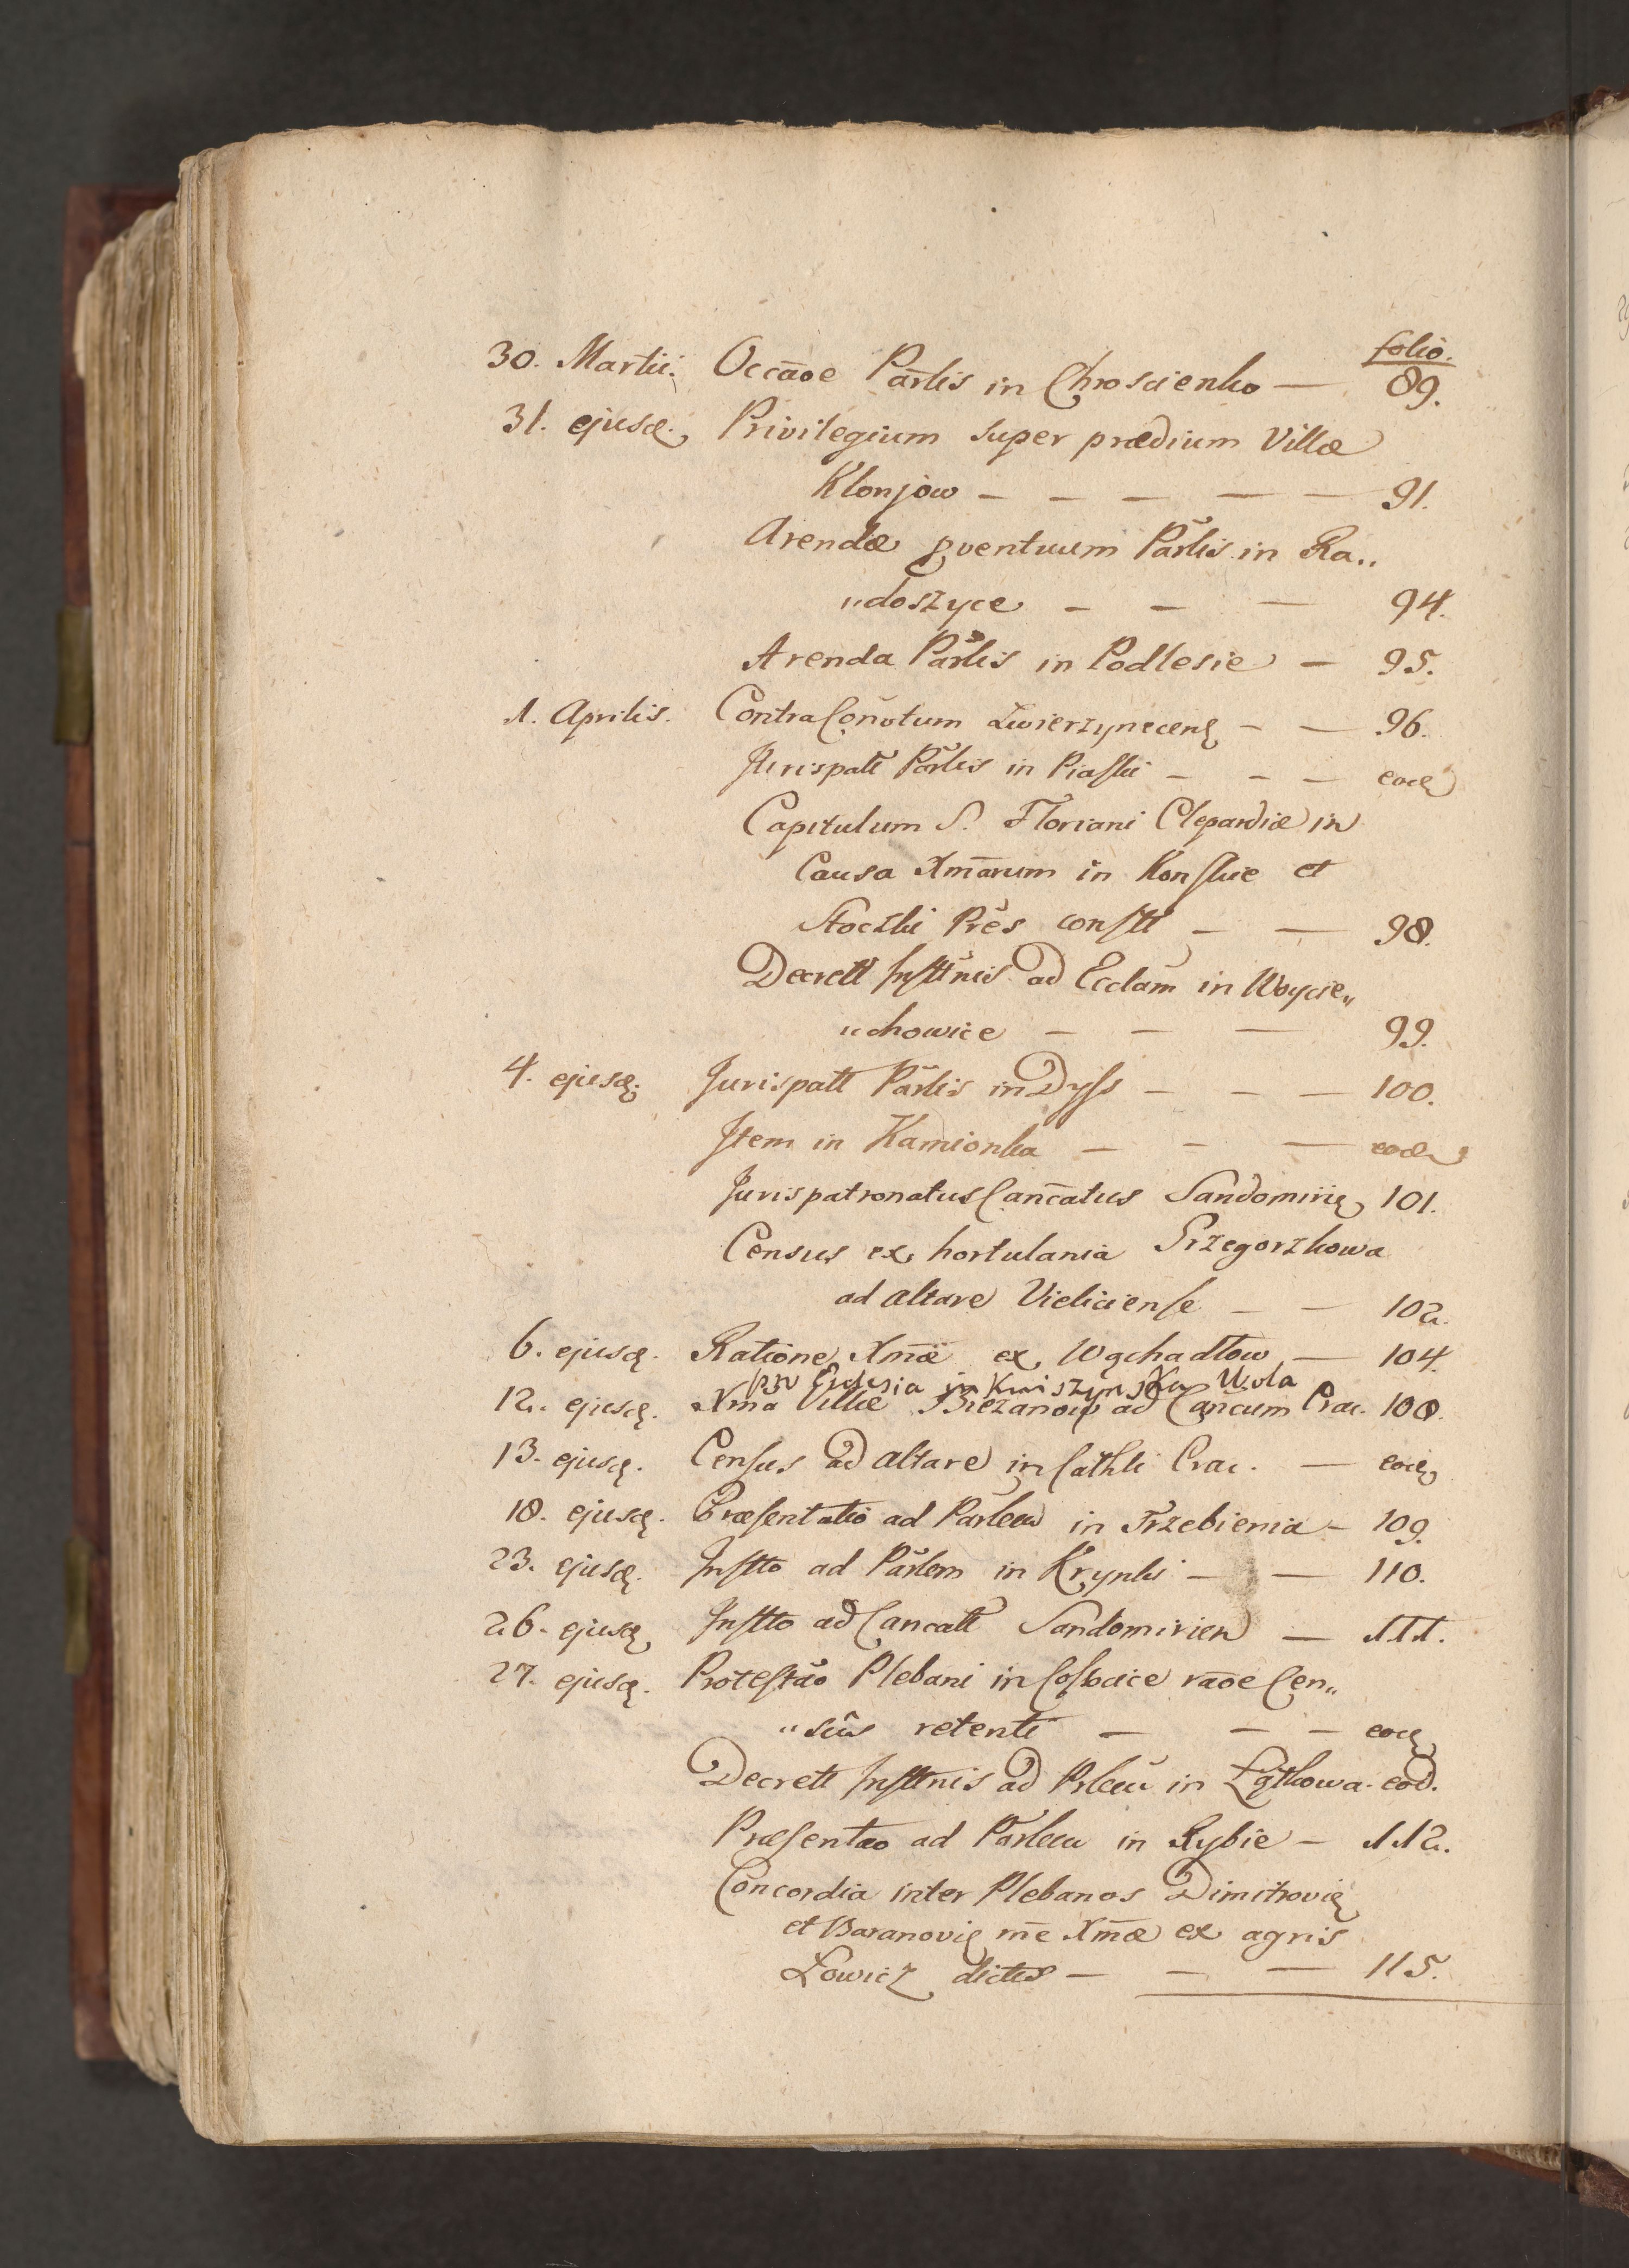 folio.
30. Martii. Occāoe Pārlis in Chroscienko — 89.
31. ejusd. Privilegium super prædium Villæ
Klonjow — — — — — 91.
Arendæ pventuum Pārlis in Ra„
„doszyce — — — 94.
Arenda Pārlis in Podlesie — 95.
1. Aprilis. Contra Coñvtum Zwierzynecens — — 96.
Jurispatt Pārlis in Piaski — — — eod
Capitulum S. Floriani Clepardiæ in
Causa Xmārum in Konskie et
Stoczki Prēs constt — — 98.
Decrett Insttnis ad Ecclām in Woycie„
„chowice — — — 99.
4. ejusd. Jurispatt Pārlis in Dyss — — — 100.
Item in Kamionka — — — eod
Jurispatronatus Canc̄atus Sandomirie 101.
Census ex hortulania Grzegorzkowa
ad altare Vieliciense — — 102.
6. ejusd. Ratione Xmæ ex Wąchadlow — 104.
pro Ecclesia in Kniszynska Wola
12. ejusd. Xma Villæ Biezanow ad Cancum Crac. 108.
13. ejusd. Census ad altare in Cathli Crac. — eod
18. ejusd. Præsentatio ad Pārleū in Trzebienia — 109.
23. ejusd. Instto ad Pārlem in Krynki — — 110.
26. ejusd Instto ad Cancatt Sandomirien — 111.
27. ejusd. Protestāo Plebani in Coskocice rāoe Cen„
„sûs retenti — — — eod
Decrett Insttnis ad Prleū in Łątkowa. eod.
Præsentāo ad Pārleū in Rybie — 112.
Concordia inter Plebanos Dimitrovie
et Baranovie rn̄e Xmæ ex agris
Łowicz dictis — — — 115.